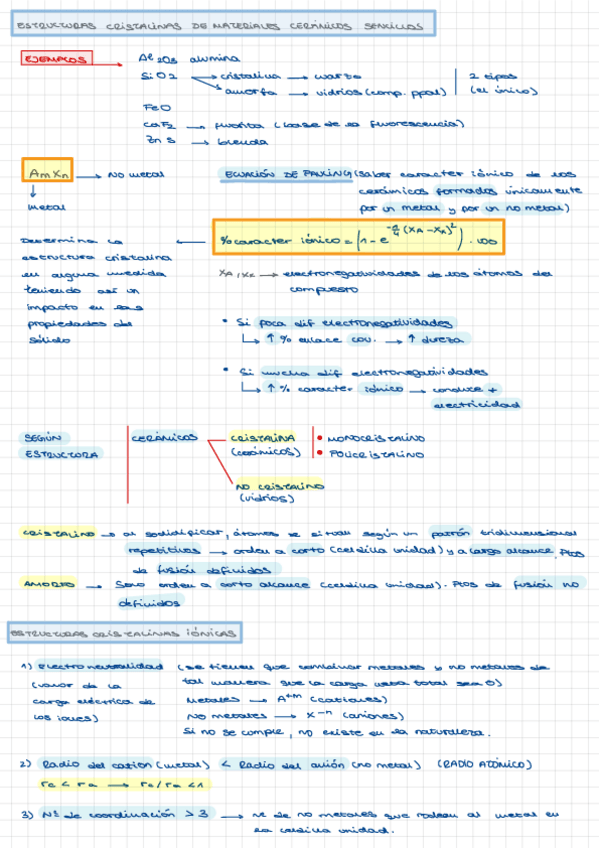 ESTRUCTURAS CRISTALINAS DE MATERIALES CERÁMICOS SENCILLOS
EJEMPLOS
Al2O3 alumina
SiO2 cristalina → cuarzo
amorfa → vidrios (comp. ppal)
2 tipos
(el único)
FeO
CaF2 → fluorita (base de la fluorescencia)
ZnS → blenda
AmXn → NO metal
Metal
ECUACIÓN DE PAULING (saber caracter iónico de los
cerámicos formados únicamente
por un metal y por un no metal)
% caracter iónico = (1 - e^(-1/4 (XA - XX)^2)) · 100
Determina la
estructura cristalina
en alguna medida
teniendo así un
impacto en las
propiedades del
sólido
XA, XX → electronegatividades de los átomos del
compuesto
• Si poca dif electronegatividades
↳ ↑ % enlace cov. → ↑ dureza
• Si mucha dif electronegatividades
↳ ↑ % caracter iónico → conduce +
electricidad
SEGÚN
ESTRUCTURA
CERÁMICOS
CRISTALINA
(cerámicos)
• MONOCRISTALINO
• POLICRISTALINO
NO CRISTALINO
(vidrios)
CRISTALINO → al solidificar, átomos se situan según un patrón tridimensional
repetitivos → orden a corto (celdilla unidad) y a largo alcance. Ptos
de fusión definidos
AMORFO → Solo orden a corto alcance (celdilla unidad). Ptos de fusión no
definidos
ESTRUCTURAS CRISTALINAS IÓNICAS
1) Electroneutralidad (se tienen que combinar metales y no metales de
tal manera que la carga neta total sea 0)
(valor de la
carga eléctrica de
los iones)
Metales → A+m (cationes)
No metales → X-n (aniones)
Si no se cumple, no existe en la naturaleza.
2) Radio del catión (metal) < Radio del anión (no metal) (RADIO ATÓMICO)
rc < ra → rc/ra < 1
3) Nº de coordinación > 3 → nº de no metales que rodean al metal en
la celdilla unidad.